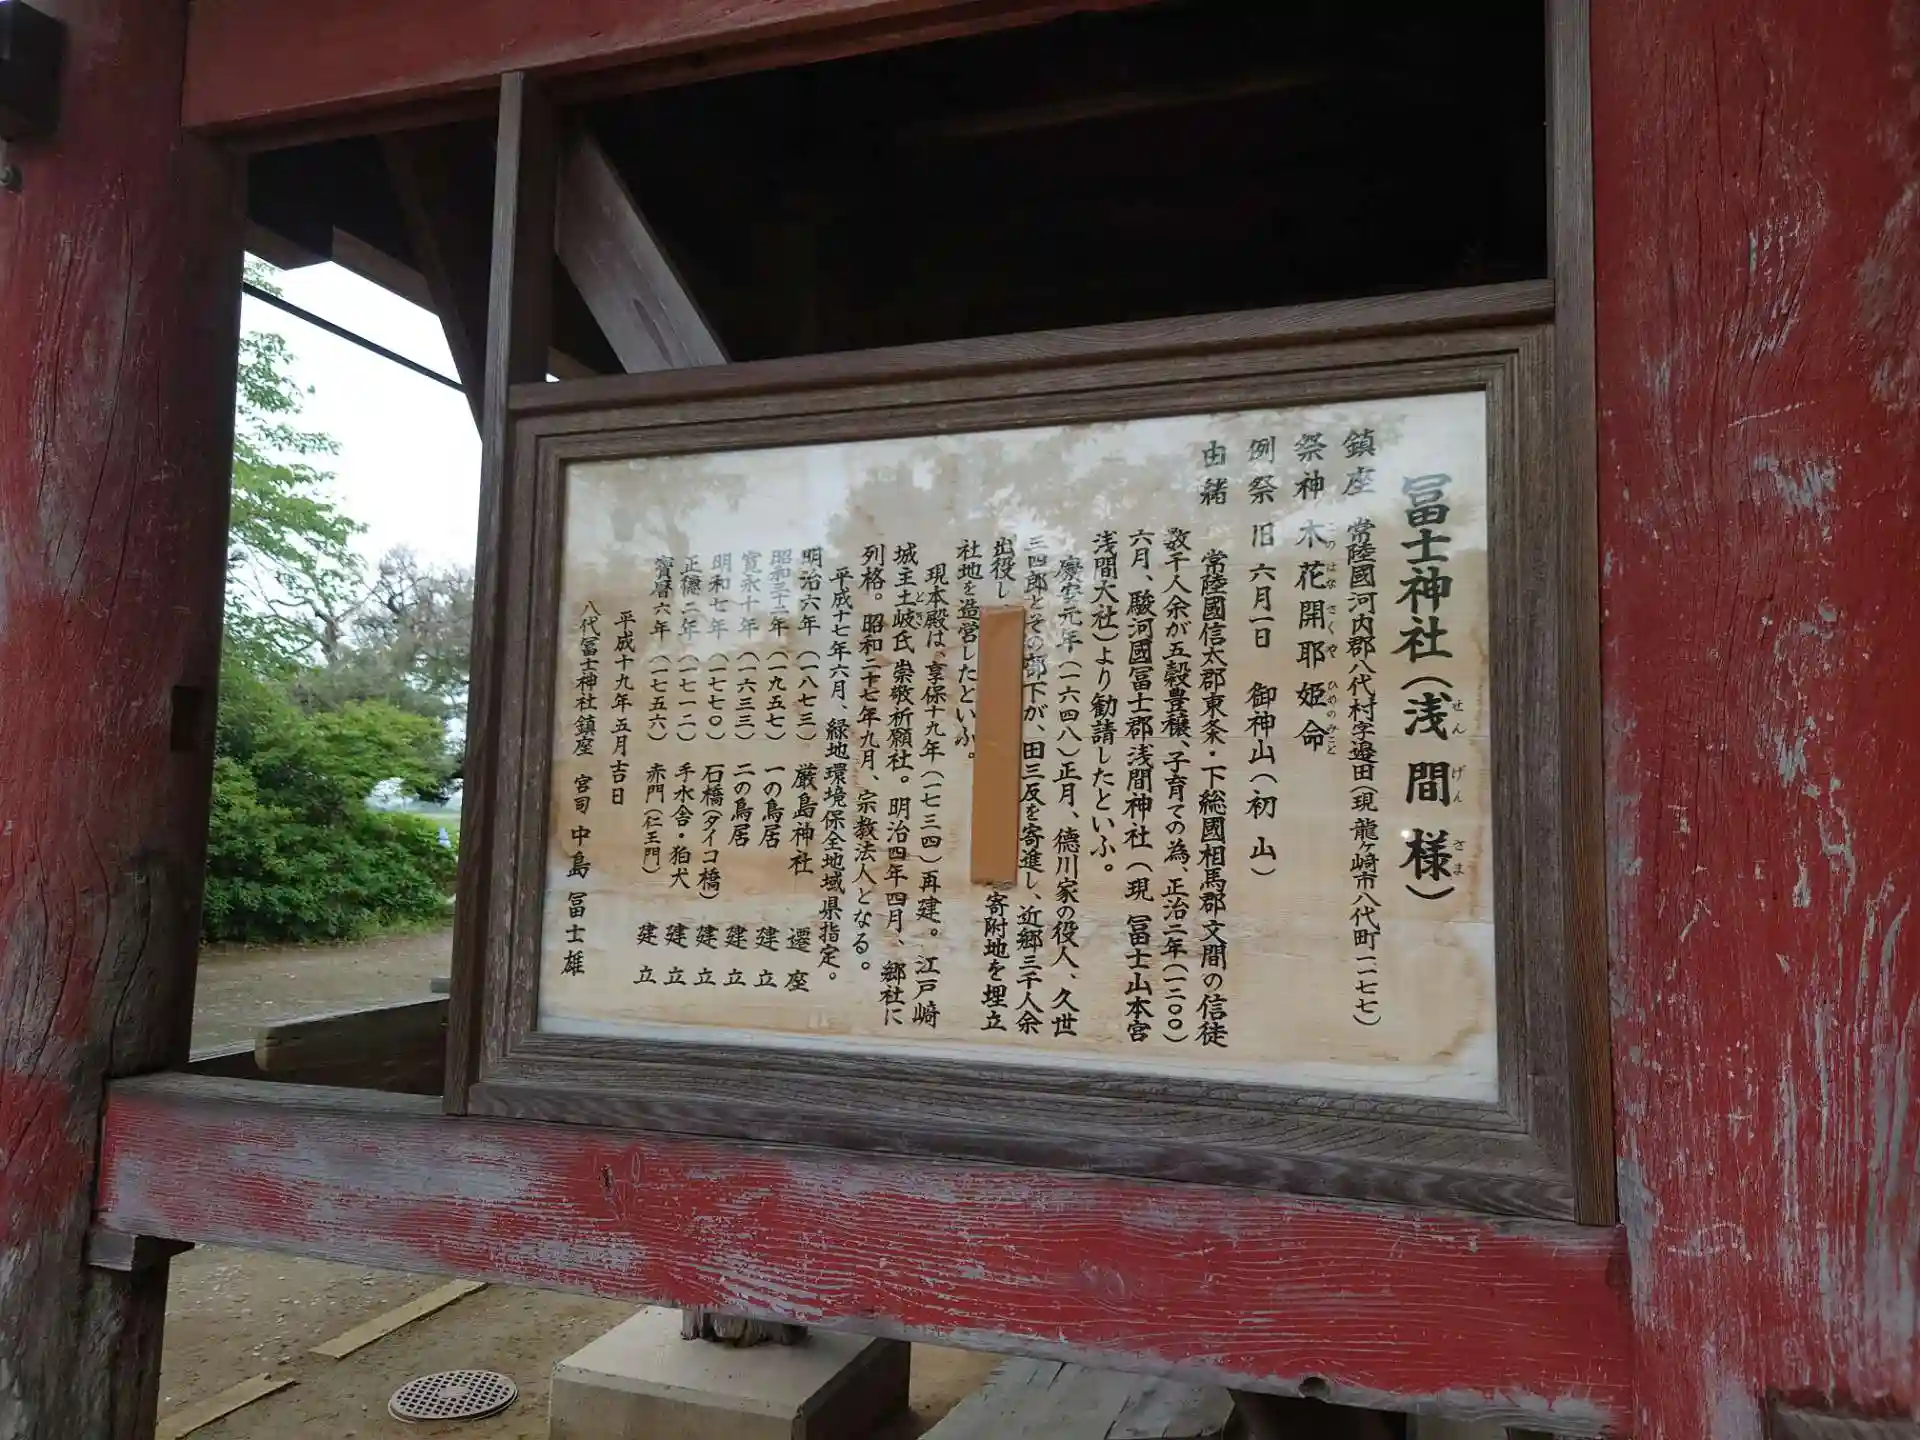 冨士神社（浅間様）
せんげんさま
鎮座 常陸國河内郡八代村字邉田（現 龍ヶ崎市八代町一一七七）
祭神 木花開耶姫命
このはなさくやひめのみこと
例祭 旧六月一日 御神山（初山）
由緒
常陸國信太郡東条・下総國相馬郡文間の信徒
数千人余が五穀豊穣、子育ての為、正治二年（一二〇〇）
六月、駿河國冨士郡浅間神社（現 冨士山本宮
浅間大社）より勧請したといふ。
慶安元年（一六四八）正月、德川家の役人、久世
三四郎とその部下が、田三反を寄進し、近郷三千人余
出役し 寄附地を埋立
社地を造営したといふ。
現本殿は、享保十九年（一七三四）再建。江戸崎
城主土岐氏 崇敬祈願社。明治四年四月、郷社に
とき
列格。昭和二十七年九月、宗教法人となる。
平成十七年六月、緑地環境保全地域県指定。
明治六年（一八七三） 厳島神社 遷座
昭和三十二年（一九五七） 一の鳥居 建立
寛永十年（一六三三） 二の鳥居 建立
明和七年（一七七〇） 石橋（タイコ橋） 建立
正德二年（一七一二） 手水舎・狛犬 建立
寳暦六年（一七五六） 赤門（仁王門） 建立
平成十九年五月吉日
八代冨士神社鎮座 宮司 中島 冨士雄